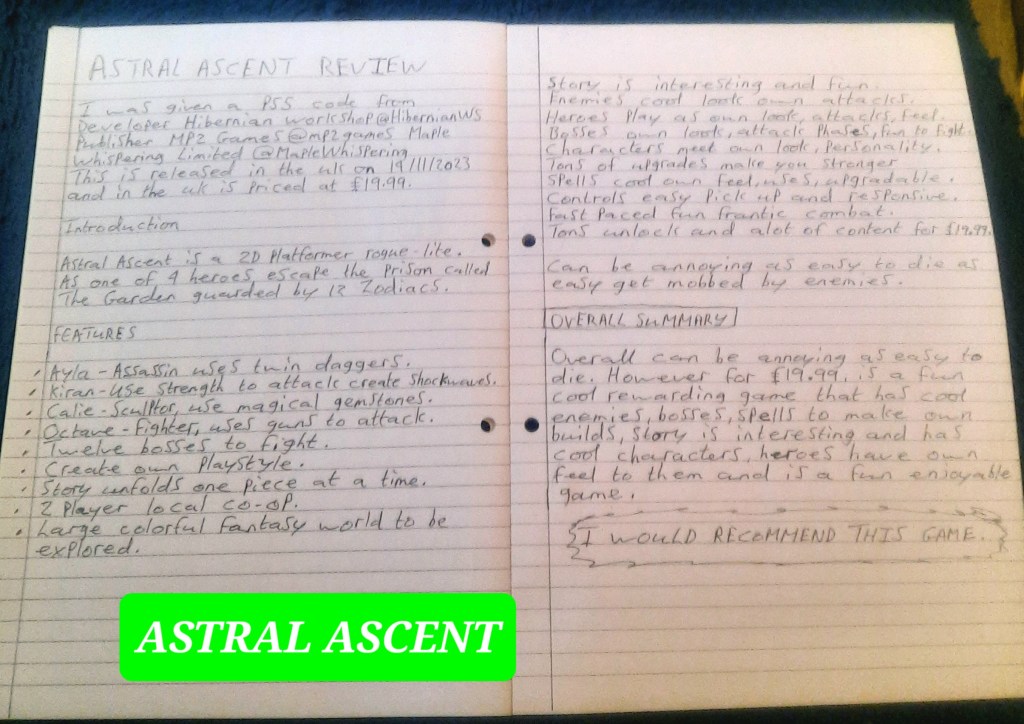 ASTRAL ASCENT REVIEW
I was given a PS5 code from
Developer Hibernian Workshop @HibernianWS
Publisher MP2 Games @mp2games Maple
Whispering Limited @MapleWhispering
This is released in the uk on 14/11/2023
and in the uk is priced at £19.99.
Introduction
Astral Ascent is a 2D Platformer rogue-lite.
As one of 4 heroes, escape the Prison called
The Garden guarded by 12 Zodiacs.
FEATURES
• Ayla - Assassin uses twin daggers.
• Kiran - Use strength to attack create shockwaves.
• Calie - Sculptor, use magical gemstones.
• Octave - Fighter, uses guns to attack.
• Twelve bosses to fight.
• Create own Playstyle.
• Story unfolds one piece at a time.
• 2 Player local co-op.
• Large colorful fantasy world to be
explored.
Story is interesting and fun.
Enemies cool look own attacks.
Heroes Play as own look, attacks, feel.
Bosses own look, attack Phases, fun to fight.
Characters meet own look, Personality.
Tons of upgrades make you stronger
Spells cool own feel, uses, upgradable.
Controls easy Pick up and responsive.
Fast Paced fun frantic combat.
Tons unlock and alot of content for £19.99.
Can be annoying as easy to die as
easy get mobbed by enemies.
OVERALL SUMMARY
Overall can be annoying as easy to
die. However for £19.99, is a fun
cool rewarding game that has cool
enemies, bosses, spells to make own
builds, story is interesting and has
cool characters, heroes have own
feel to them and is a fun enjoyable
game.
I WOULD RECOMMEND THIS GAME.
ASTRAL ASCENT